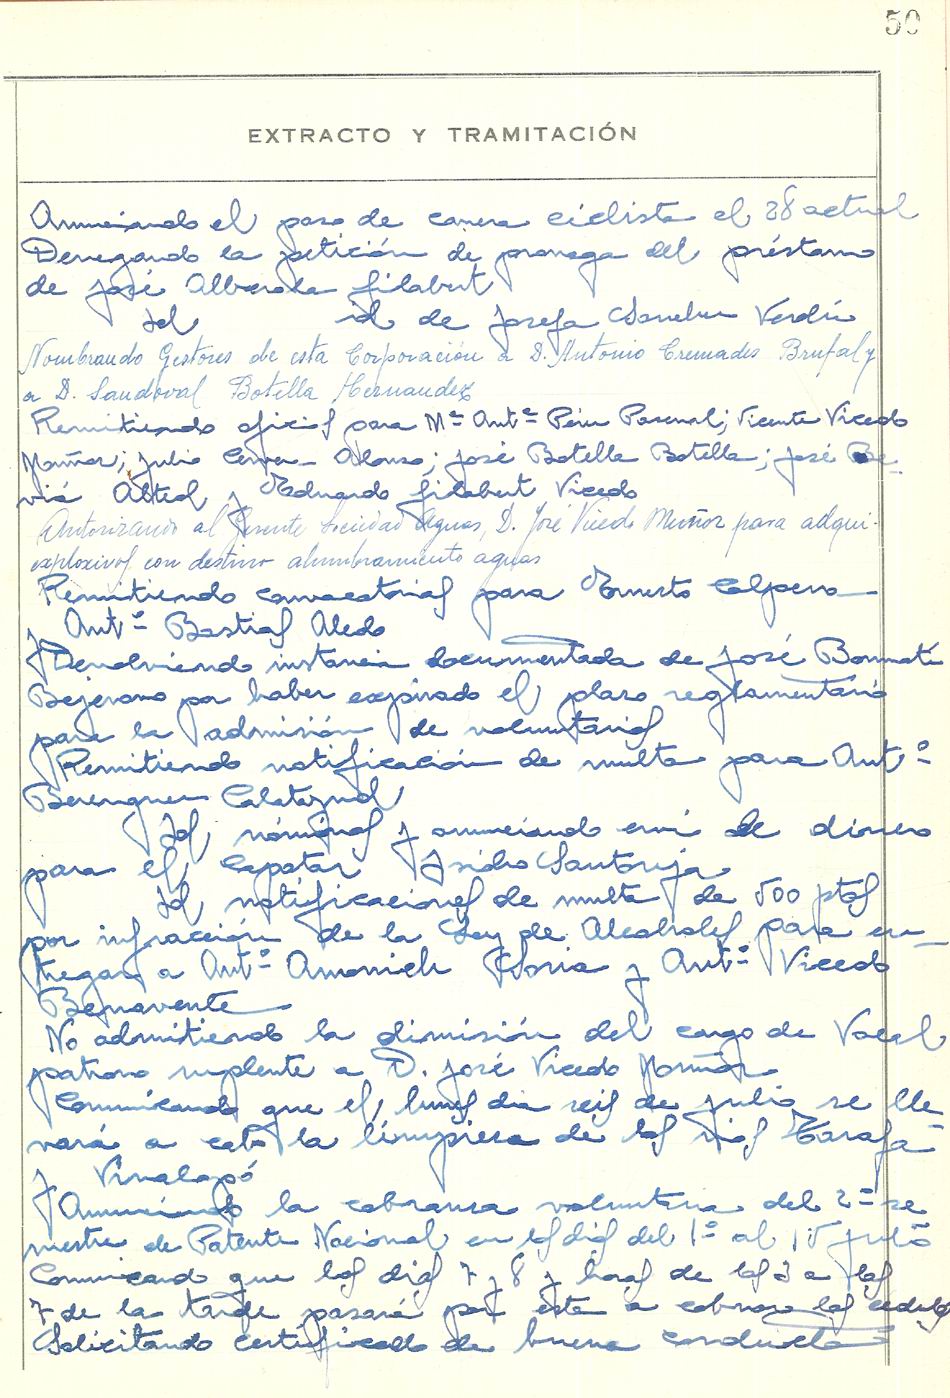 50
EXTRACTO Y TRAMITACIÓN
Anunciando el paso de carrera ciclista el 28 actual
Denegando la petición de prorroga del préstamo
de José Alberola Gilabert
Id id de Josefa Sanchez Verdú
Nombrando Gestores de esta Corporación a D. Antonio Cremades Brufal y
a D. Sandoval Botella Hernandez
Remitiendo oficios para Mª Antª Pérez Pascual; Vicente Vicedo
Muñoz; Julio Cerver Alonso; José Botella Botella; José Be-
viá Abtol y Eduardo Gilabert Vicedo
Autorizando al Gerente Sociedad Aguas, D. José Vicedo Muñoz para adqui-
explosivos con destino alumbramiento aguas
Remitiendo convocatorias para Ernesto Calpena
y Antº Bastias Aledo
Devolviendo instancia documentada de José Bonmatí
Bejerano por haber expirado el plazo reglamentario
para la admisión de voluntarios
Remitiendo notificación de multa para Antº
Berenguer Calatayud
Id, nóminas y anunciando envi de dinero
para el Capataz Isidro Santonja
Id, notificaciones de multa de 500 ptas
por infracción de la Ley de Alcoholes para en-
tregar a Antº Amorich Soria y Antº Vicedo
Benavente
No admitiendo la dimisión del cargo de Vocal
patrono suplente a D. José Vicedo Muñoz
Comunicando que el lunes dia seis de julio se lle-
vará a cabo la limpieza de los rios Tarafa
y Vinalapó
Anunciando la cobranza voluntaria del 2º se
mestre de Patente Nacional en los dias del 1º al 15 julio
Comunicando que los dias 7 y 8 y horas de las 3 a las
7 de la tarde pasará por esta a cobrar las cedulas
Solicitando certificado de buena conducta